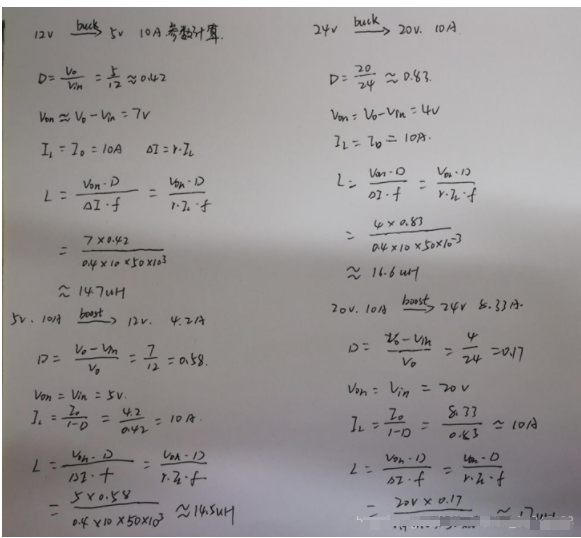 12V buck→ 5V 10A 参数计算.
D = Vo/Vin = 5/12 ≈ 0.42
Von ≈ Vo - Vin = 7V
IL = Io = 10A ΔI = r·IL
L = Von·D/ΔI·f = Von·D/r·IL·f
= 7×0.42/0.4×10×50×10³
≈ 14.7uH
5V. 10A boost→ 12V. 4.2A
D = Vo-Vin/Vo = 7/12 = 0.58.
Von = Vin = 5V.
IL = Io/1-D = 4.2/0.42 = 10A.
L = Von·D/ΔI·f = Von·D/r·IL·f
= 5×0.58/0.4×10×50×10³ ≈ 14.5uH
24V buck→ 20V. 10A
D = 20/24 ≈ 0.83.
Von = Vo - Vin = 4V
IL = Io = 10A.
L = Von·D/ΔI·f = Von·D/r·IL·f
= 4×0.83/0.4×10×50×10⁻³
≈ 16.6uH
20V. 10A boost→ 24V 8.33A.
D = Vo-Vin/Vo = 4/24 = 0.17
Von = Vin = 20V
IL = Io/1-D = 8.33/0.83 ≈ 10A
L = Von·D/ΔI·f = Von·D/r·IL·f
= 20V×0.17 ≈ 17uH